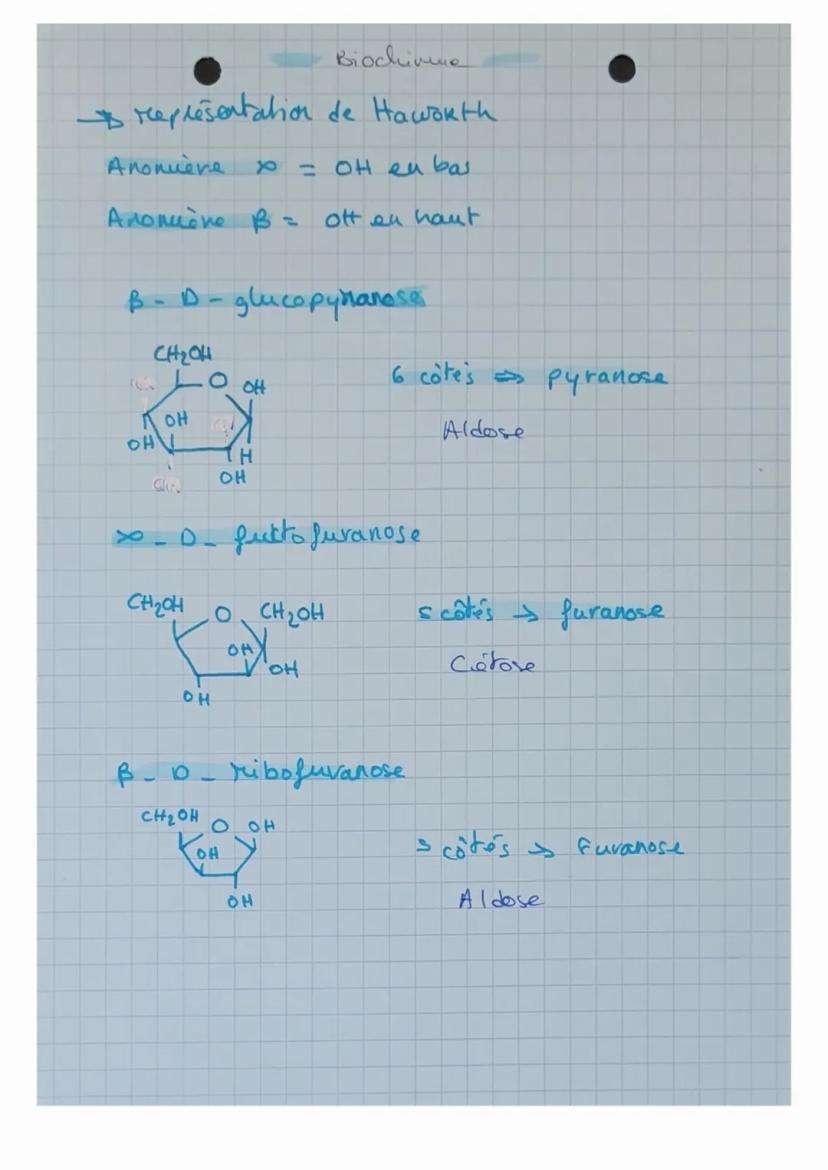 Biochimie
→ représentation de Haworth
Anomère α = OH en bas
Anomère β = OH en haut
β - D - glucopyranose
CH₂OH
O OH
OH
OH
H
OH
6 côtés ⇒ pyranose
Aldose
α - D - fructofuranose
CH₂OH O CH₂OH
OH
OH
OH
5 côtés → furanose
Cétose
β - D - ribofuranose
CH₂OH O OH
OH
OH
5 côtés → Furanose
Aldose